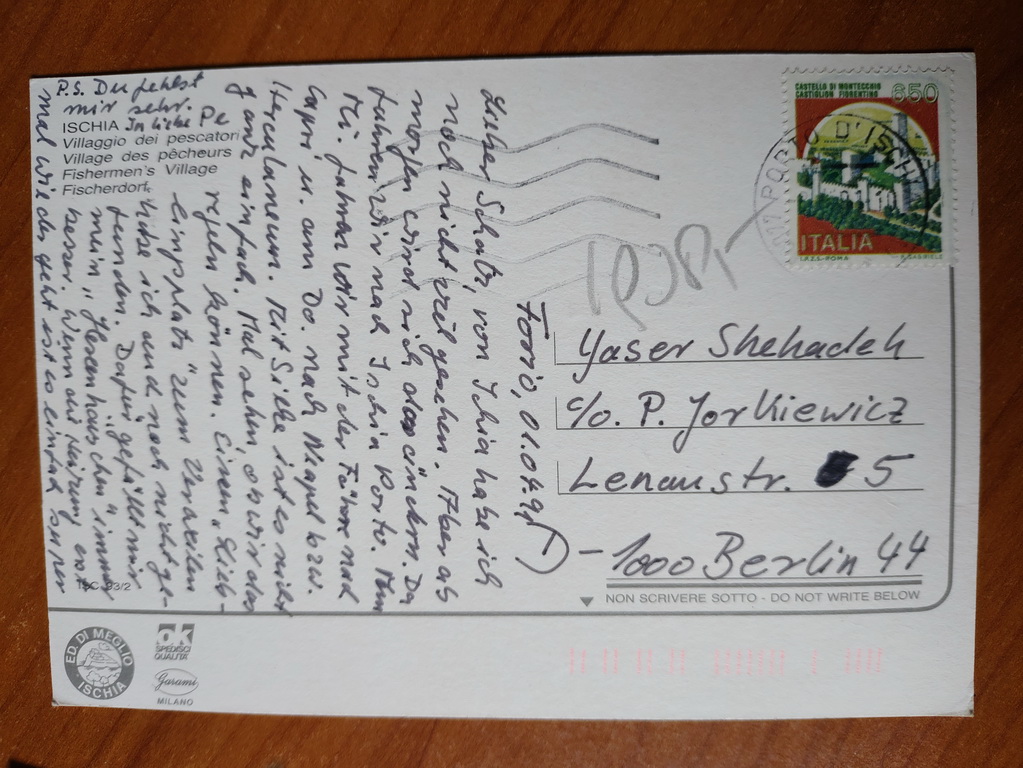 Forio, 01.04.91
Lieber Schatz, von Ischia habe ich
noch nicht viel gesehen. Aber ab
morgen wird sich das ändern. Da
fahren wir nach Ischia Porto. Am
Mi. fahren wir mit der Fähre nach
Capri u. am Do. nach Neapel bzw.
Herculaneum. Mit Siebe ist es nicht
ganz einfach. Mal sehen, ob wir das
regeln können. Einen "Lieb-
lingsplatz" zum Verweilen
habe ich auch noch nicht ge-
funden. Dafür gefällt mir
mein "Hexenhäuschen" immer
besser. Wenn die Heizung
mal wieder geht ist es einfach super
P.S. Du fehlst
mir sehr.
In Liebe Pe
ISCHIA
Villaggio dei pescatori
Village des pêcheurs
Fishermen's Village
Fischerdorf
TSC 93/2
CASTELLO DI MONTECCHIO
CASTIGLION FIORENTINO
650
ITALIA
I.P.Z.S.-ROMA
PORTO D'ISCHI
Yaser Shehadeh
c/o. P. Jorkiewicz
Lenaustr. 5
D-1000 Berlin 44
NON SCRIVERE SOTTO - DO NOT WRITE BELOW
ED. DI MEGLIO
ISCHIA
ok
SPEDISCI
QUALITA'
Garami
MILANO